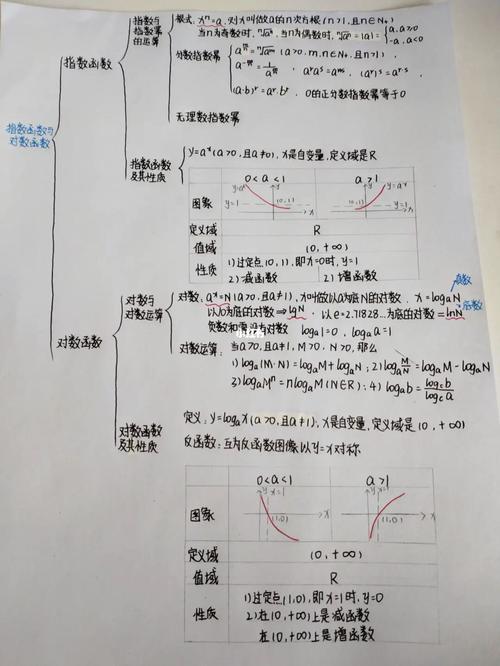 指数函数与
对数函数
指数函数
指数与
指数幂
的运算
根式: xⁿ=a, 对x叫做a的n次方根(n>1, 且n∈N₊)
当n为奇数时, ⁿ√aⁿ, 当n为偶数时, ⁿ√aⁿ=|a|={a, a≥0
-a, a<0
分数指数幂
(a>0, m, n∈N₊, 且n>1),
(a·b)ʳ=aʳ·bʳ, 0的正分数指数幂等于0
无理数指数幂
指数函数
及其性质
y=aˣ(a>0, 且a≠0), x是自变量, 定义域是R
0<a<1
a>1
图象
y=aˣ
y=1
(0,1)
x
y
y=aˣ
y=1
(0,1)
x
y
定义域
R
值域
(0,+∞)
性质
1)过定点(0,1), 即x=0时, y=1
2)减函数
2)增函数
对数函数
对数与
对数运算
对数: aˣ=N(a>0, 且a≠1), x叫做以a为底N的对数, x=logₐN
真数
底数
以10为底的对数⇒lgN. 以e=2.71828…为底的对数=lnN
负数和零没有对数 logₐ1=0, logₐa=1
对数运算: 当a>0, 且a≠1, M>0, N>0, 那么
1)logₐ(M·N)=logₐM+logₐN; 2)logₐM/N=logₐM-logₐN
3)logₐMⁿ=nlogₐM(N∈R); 4)logₐb=log꜀b/log꜀a
小红书
对数函数
及其性质
定义: y=logₐx(a>0, 且a≠1), x是自变量, 定义域是(0,+∞)
反函数: 互为反函数图像以y=x对称
0<a<1
a>1
图象
y
x=1
(1,0)
x
y
x=1
(1,0)
x
定义域
(0,+∞)
值域
R
性质
1)过定点(1,0), 即x=1时, y=0
2)在(0,+∞)上是减函数
在(0,+∞)上是增函数